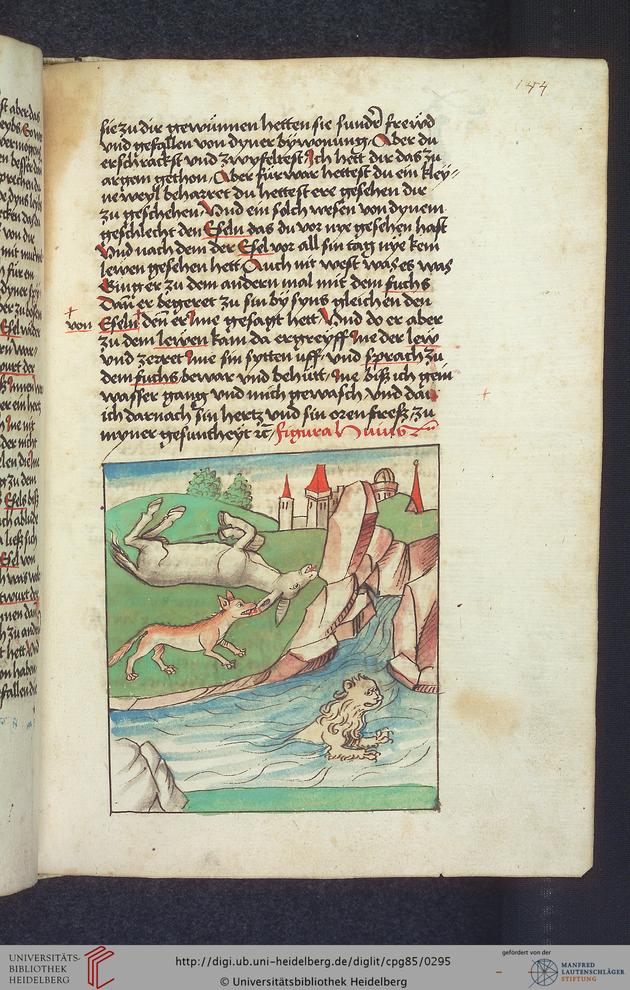 144
sie zu dir gewünnen hetten sie sunder frewd
vnd gefallen von dyner bywonung Aber du
erschrackst vnd zwyfeltest Ich hett dir das zu
argem gethon Aber für war hettest du ein kley-
ne weyl beharret du hettest ere gesehen dir
zu geschehen Vnd ein solch wesen von dynem
geschlecht den Eseln das du vor nye gesehen hast
Vnd nach dem der Esel vor all sin tag nye kein
lewen gesehen hett Auch nit west was es was
Ging er zu dem andern mal mit dem fuchs
Dann er begeret zu sin by syns gleichen den
von Eseln den er Ime gesagt hett Vnd do er aber
zu dem lewen kam da ergreyff Ine der lew
vnd zerret Ime sin sytten uff vnd sprach zu
dem fuchs bewar vnd behütt Ine biß ich gein
wasser gang vnd mich gewasch vnd dan
ich darnach sin hertz vnd sin oren freß zu
myner gesuntheyt figura
UNIVERSITÄTS-
BIBLIOTHEK
HEIDELBERG
http://digi.ub.uni-heidelberg.de/diglit/cpg85/0295
© Universitätsbibliothek Heidelberg
gefördert von der
MANFRED
LAUTENSCHLÄGER
STIFTUNG